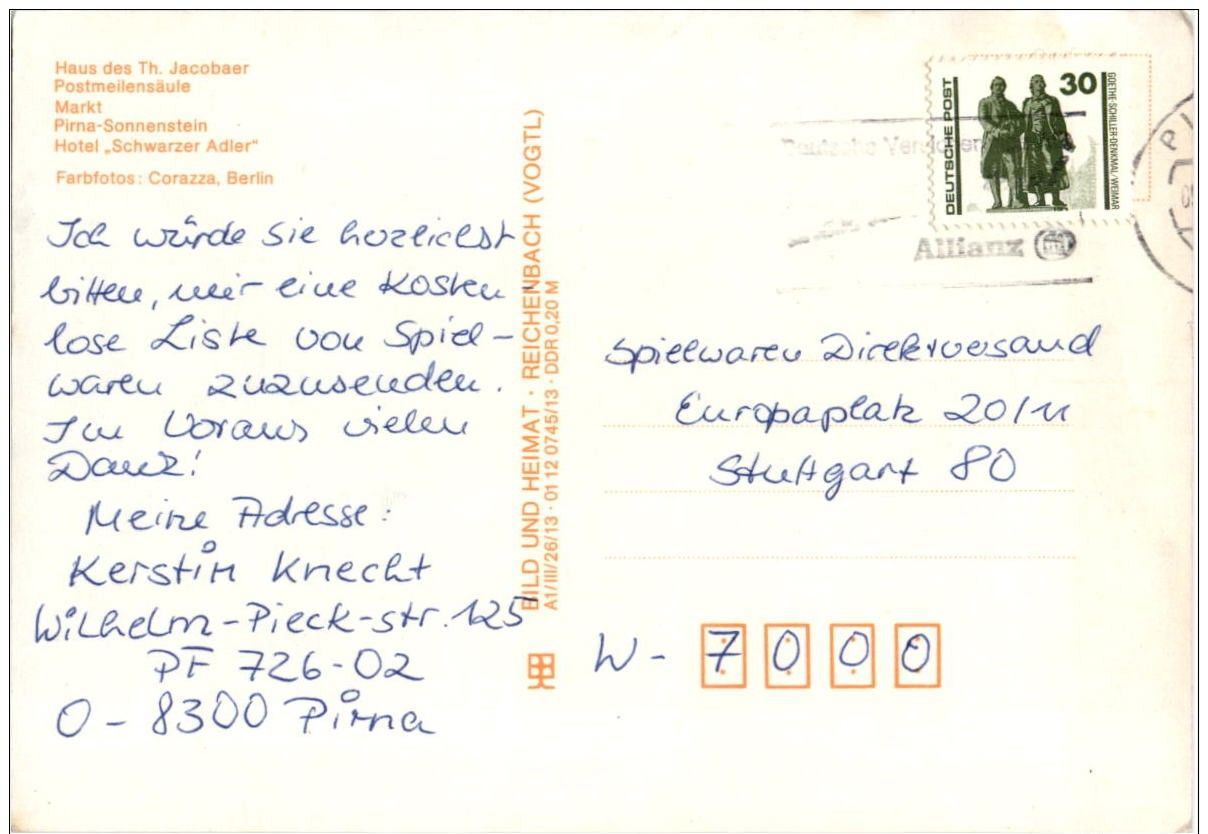 Haus des Th. Jacobaer
Postmeilensäule
Markt
Pirna-Sonnenstein
Hotel „Schwarzer Adler"
Farbfotos: Corazza, Berlin
Ich würde sie herzlichst
bitten, mir eine Kosten-
lose Liste von Spiel-
waren zuzusenden.
Im Voraus vielen
Dank!
Meine Adresse:
Kerstin Knecht
Wilhelm-Pieck-str. 125
PF 726-02
O - 8300 Pirna
BILD UND HEIMAT · REICHENBACH (VOGTL)
A1/III/26/13 · 01 12 0745/13 · DDR 0,20 M
DEUTSCHE POST
30
GOETHE-SCHILLER-DENKMAL/WEIMAR
Deutsche
Allianz
Spielwaren Direktversand
Europaplatz 20/11
Stuttgart 80
W - 7000